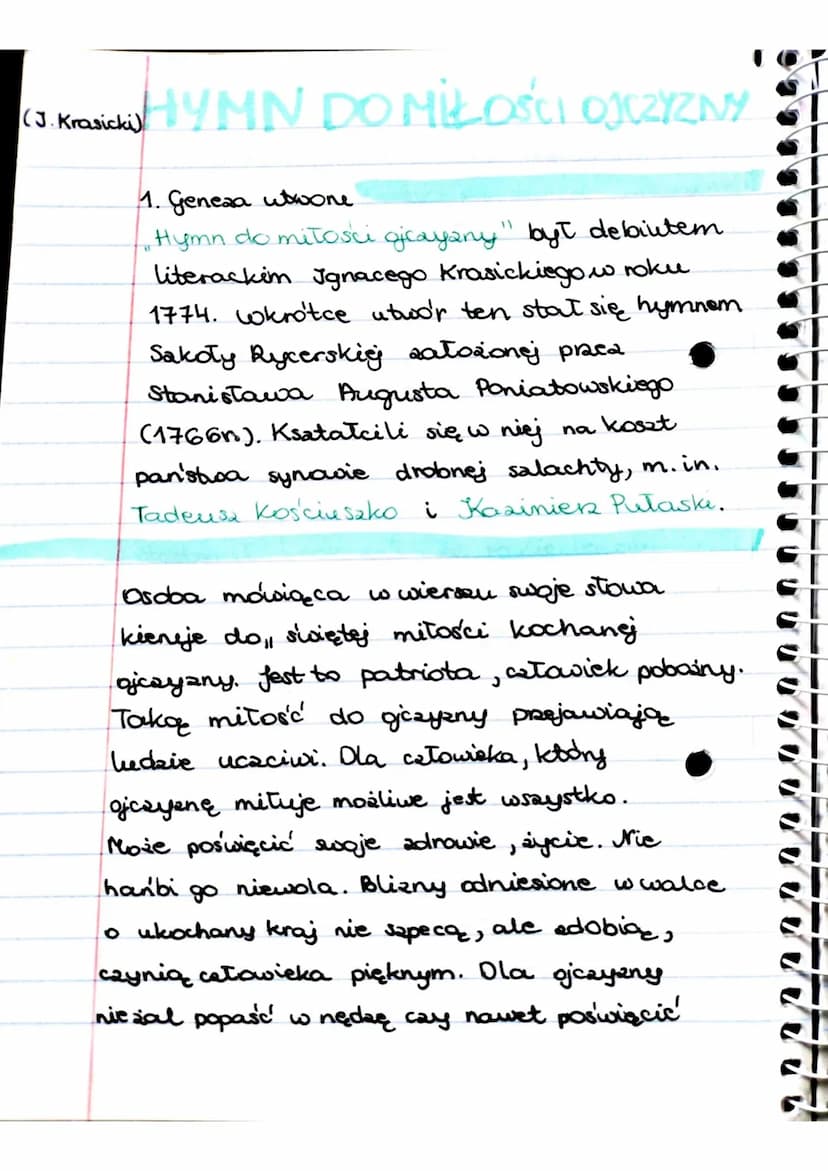 (J. Krasicki) HYMN DO MIŁOŚCI OJCZYZNY
1. Geneza utwone
„Hymn do miłości ojczyzny" był debiutem
literackim Ignacego Krasickiego w roku
1774. Wkrótce utwór ten stał się hymnem
Szkoły Rycerskiej założonej przez
Stanisława Augusta Poniatowskiego
(1766n). Kształcili się w niej na koszt
państwa synowie drobnej szlachty, m.in.
Tadeusz Kościuszko i Kazimierz Pułaski.
Osoba mówiąca w wierszu swoje słowa
kieruje do „ świętej miłości kochanej
ojczyzny. Jest to patriota, człowiek pobożny.
Taką miłość do ojczyzny przejawiają
ludzie uczciwi. Dla człowieka, który
ojczyznę miłuje możliwe jest wszystko.
Może poświęcić swoje zdrowie, życie. Nie
hańbi go niewola. Blizny odniesione w walce
o ukochany kraj nie szpecą, ale zdobią,
czynią człowieka pięknym. Dla ojczyzny
nie żal popaść w nędzę czy nawet poświęcić